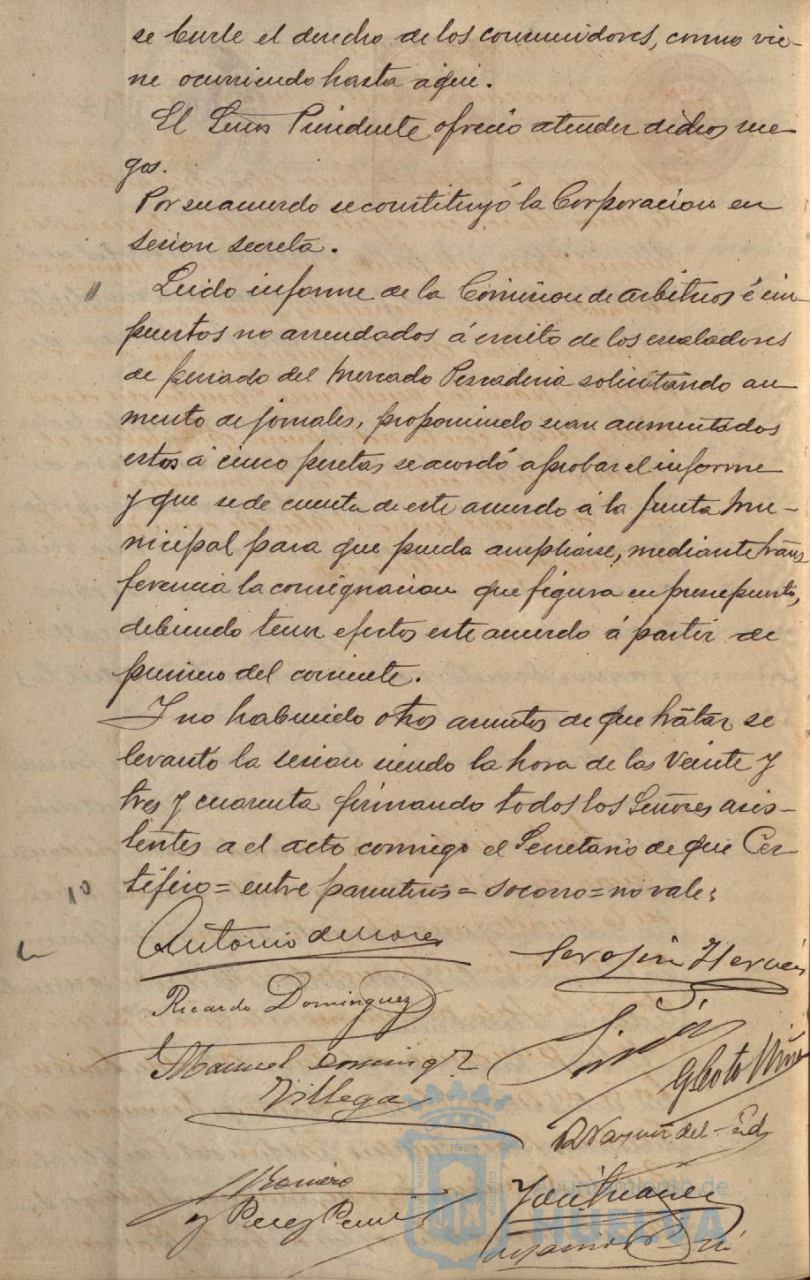 se burle el derecho de los consumidores, como vie-
ne ocurriendo hasta aqui.
El Señor Presidente ofreció atender dichos rue-
gos.
Por su acuerdo se constituyó la Corporacion en
sesion secreta.
Leido informe de la Comision de arbitrios é im
puestos no arrendados á escrito de los escaladores
de pescado del Mercado Pescaderia solicitando au
mento de jornales, proponiendo sean aumentados
estos á cinco pesetas se acordó aprobar el informe
y que se de cuenta de este acuerdo á la Junta Mu-
nicipal para que pueda ampliarse, mediante trans
ferencia la consignacion que figura en presupuesto,
debiendo tener efectos este acuerdo á partir de
primero del corriente.
Y no habiendo otros asuntos de que tratar se
levantó la sesion siendo la hora de las veinte y
tres y cuarenta firmando todos los Señores asis-
tentes a el acto conmigo el Secretario de que Cer
tifico = entre parentesis = socorro = no vale:
10
Antonio de Mora
Serafin
Ricardo Dominguez
Manuel Doming.z
Villega
R Vazquez del
Romero
y Perez
Ayuntamiento de
HUELVA